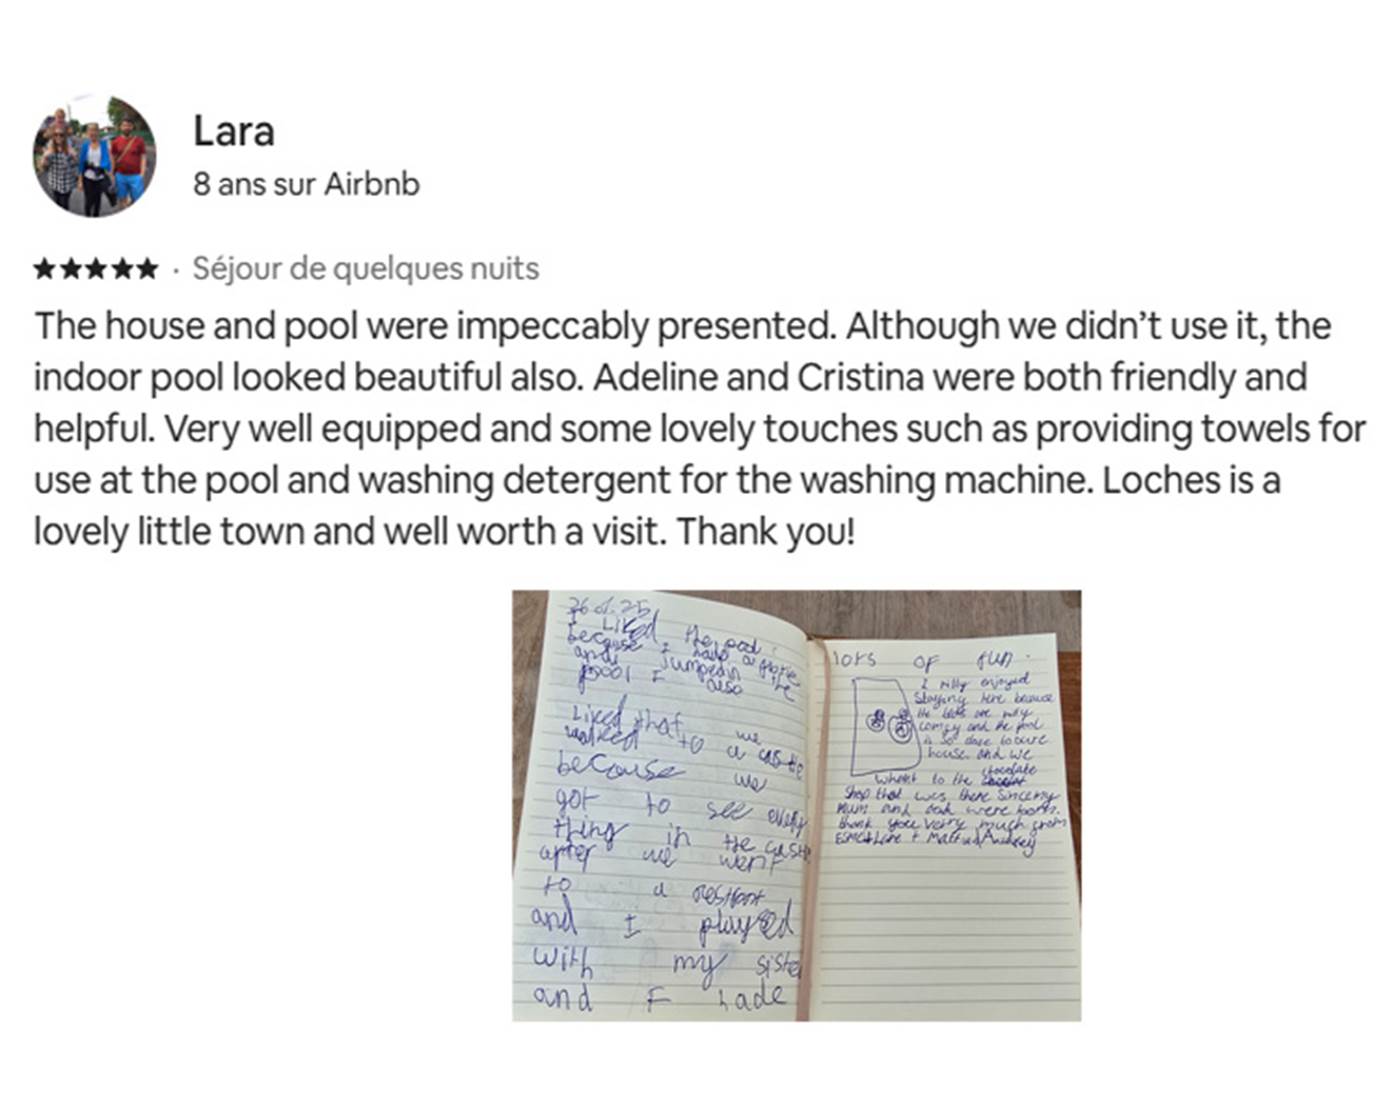 Lara
8 ans sur Airbnb
★★★★★ · Séjour de quelques nuits
The house and pool were impeccably presented. Although we didn’t use it, the
indoor pool looked beautiful also. Adeline and Cristina were both friendly and
helpful. Very well equipped and some lovely touches such as providing towels for
use at the pool and washing detergent for the washing machine. Loches is a
lovely little town and well worth a visit. Thank you!
I Liked the pool
because I hade a
and Jumped in the
pool I also
Liked that we
walked to a castle
because we
got to see every
thing in the castle
after we went
to a
and I played
with my siste
and I hade
lots of fun.
I rilly enjoyed
Staying here because
the beds are rilly
comfy and the pool
is so close to
house. and we
whent to the chocolate
Shop that was there
mum and dad were
thank you verry much from